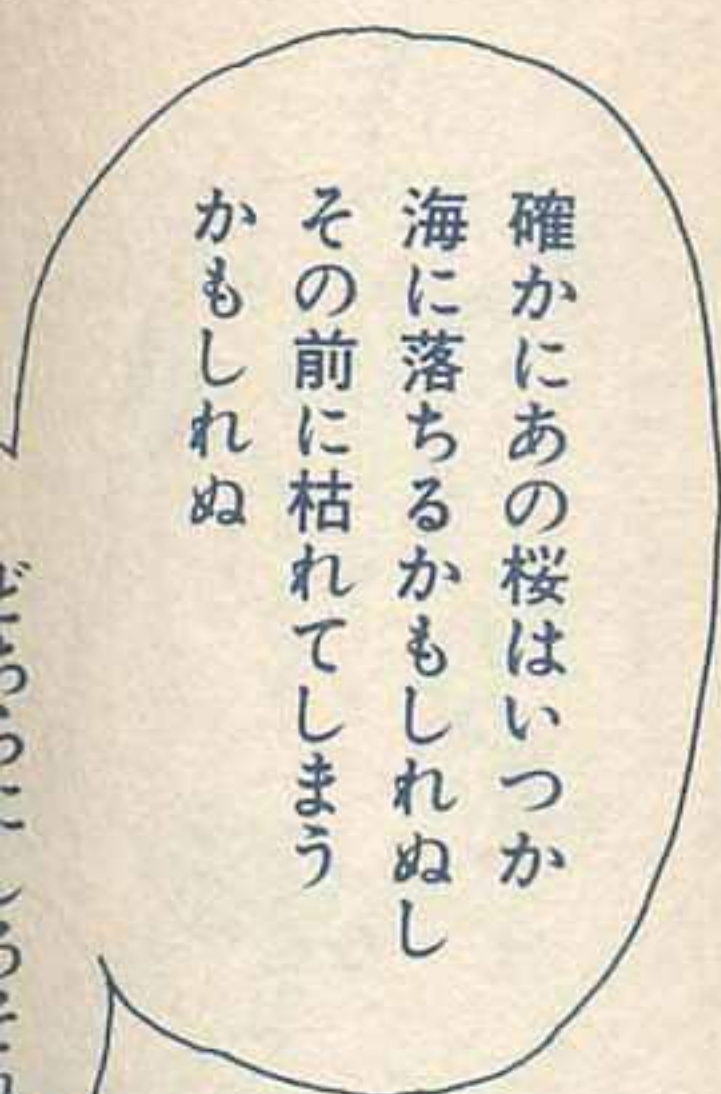 確かにあの桜はいつか
海に落ちるかもしれぬし
その前に枯れてしまう
かもしれぬ